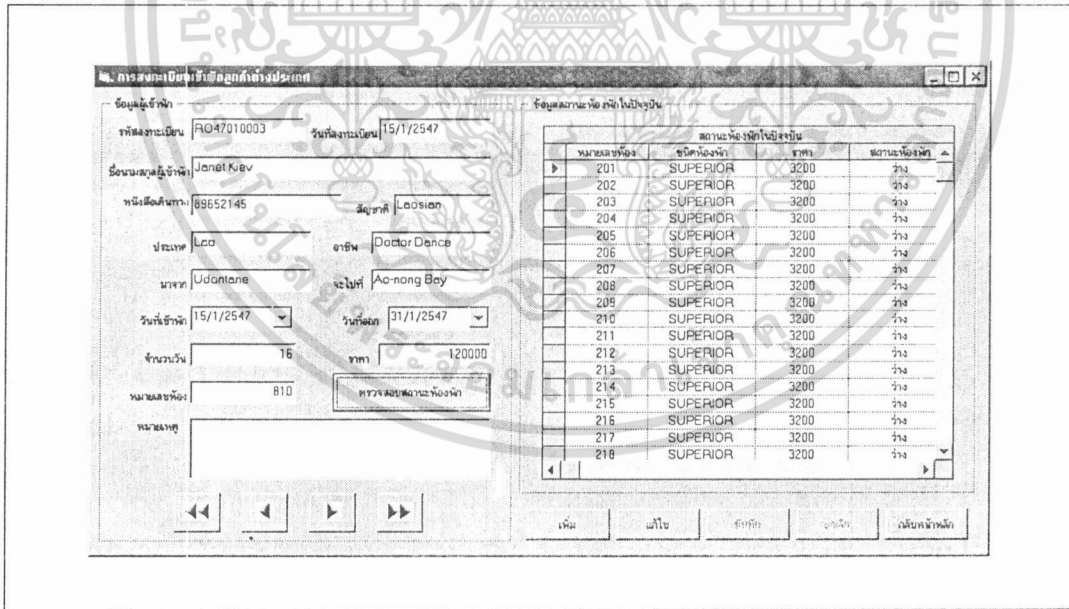 การลงทะเบียนเข้าพักลูกค้าต่างประเทศ
ข้อมูลผู้เข้าพัก
รหัสลงทะเบียน RO47010003 วันที่ลงทะเบียน 15/1/2547
ชื่อนามสกุลผู้เข้าพัก Janet Kiev
หนังสือเดินทาง 89652145 สัญชาติ Laosian
ประเทศ Lao อาชีพ Doctor Dance
มาจาก Udontane จะไปที่ Ao-nong Bay
วันที่เข้าพัก 15/1/2547 วันที่ออก 31/1/2547
จำนวนวัน 16 ราคา 120000
หมายเลขห้อง 810 ตรวจสอบสถานะห้องพัก
หมายเหตุ
ข้อมูลสถานะห้องพักในปัจจุบัน
สถานะห้องพักในปัจจุบัน
หมายเลขห้อง ชนิดห้องพัก ราคา สถานะห้องพัก
201 SUPERIOR 3200 ว่าง
202 SUPERIOR 3200 ว่าง
203 SUPERIOR 3200 ว่าง
204 SUPERIOR 3200 ว่าง
205 SUPERIOR 3200 ว่าง
206 SUPERIOR 3200 ว่าง
207 SUPERIOR 3200 ว่าง
208 SUPERIOR 3200 ว่าง
209 SUPERIOR 3200 ว่าง
210 SUPERIOR 3200 ว่าง
211 SUPERIOR 3200 ว่าง
212 SUPERIOR 3200 ว่าง
213 SUPERIOR 3200 ว่าง
214 SUPERIOR 3200 ว่าง
215 SUPERIOR 3200 ว่าง
216 SUPERIOR 3200 ว่าง
217 SUPERIOR 3200 ว่าง
218 SUPERIOR 3200 ว่าง
เพิ่ม แก้ไข บันทึก ยกเลิก กลับหน้าหลัก